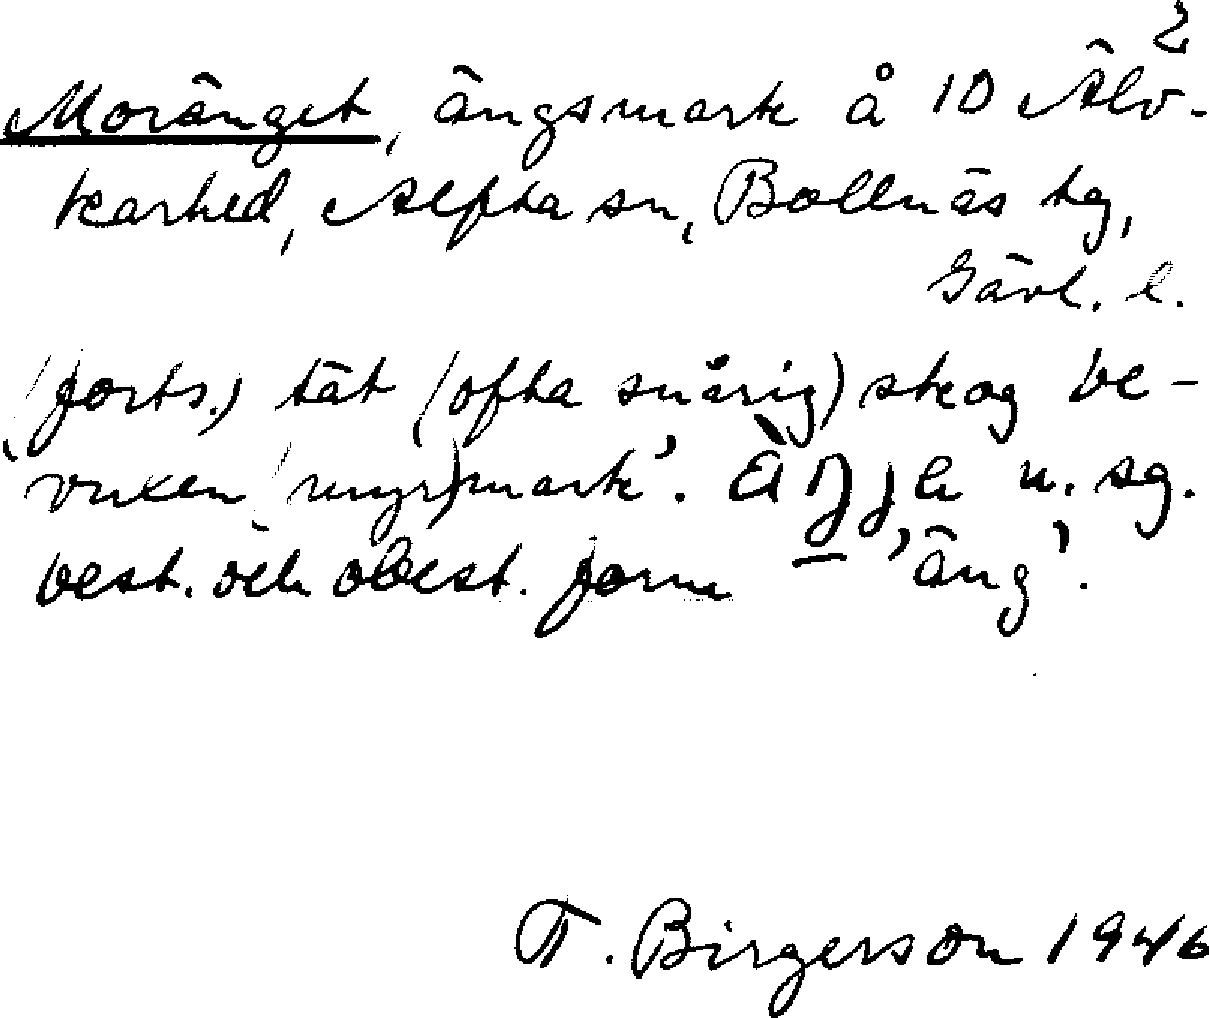 2
Moränget, ängsmark å 10 Älv-
karhed, Alfta sn, Bollnäs tg,
Gävl. l.
(forts.) tät (ofta snårig) skog be-
vuxen (myr)mark'. n. sg.
best. och obest. form = 'äng'.
T. Birgerson 1946